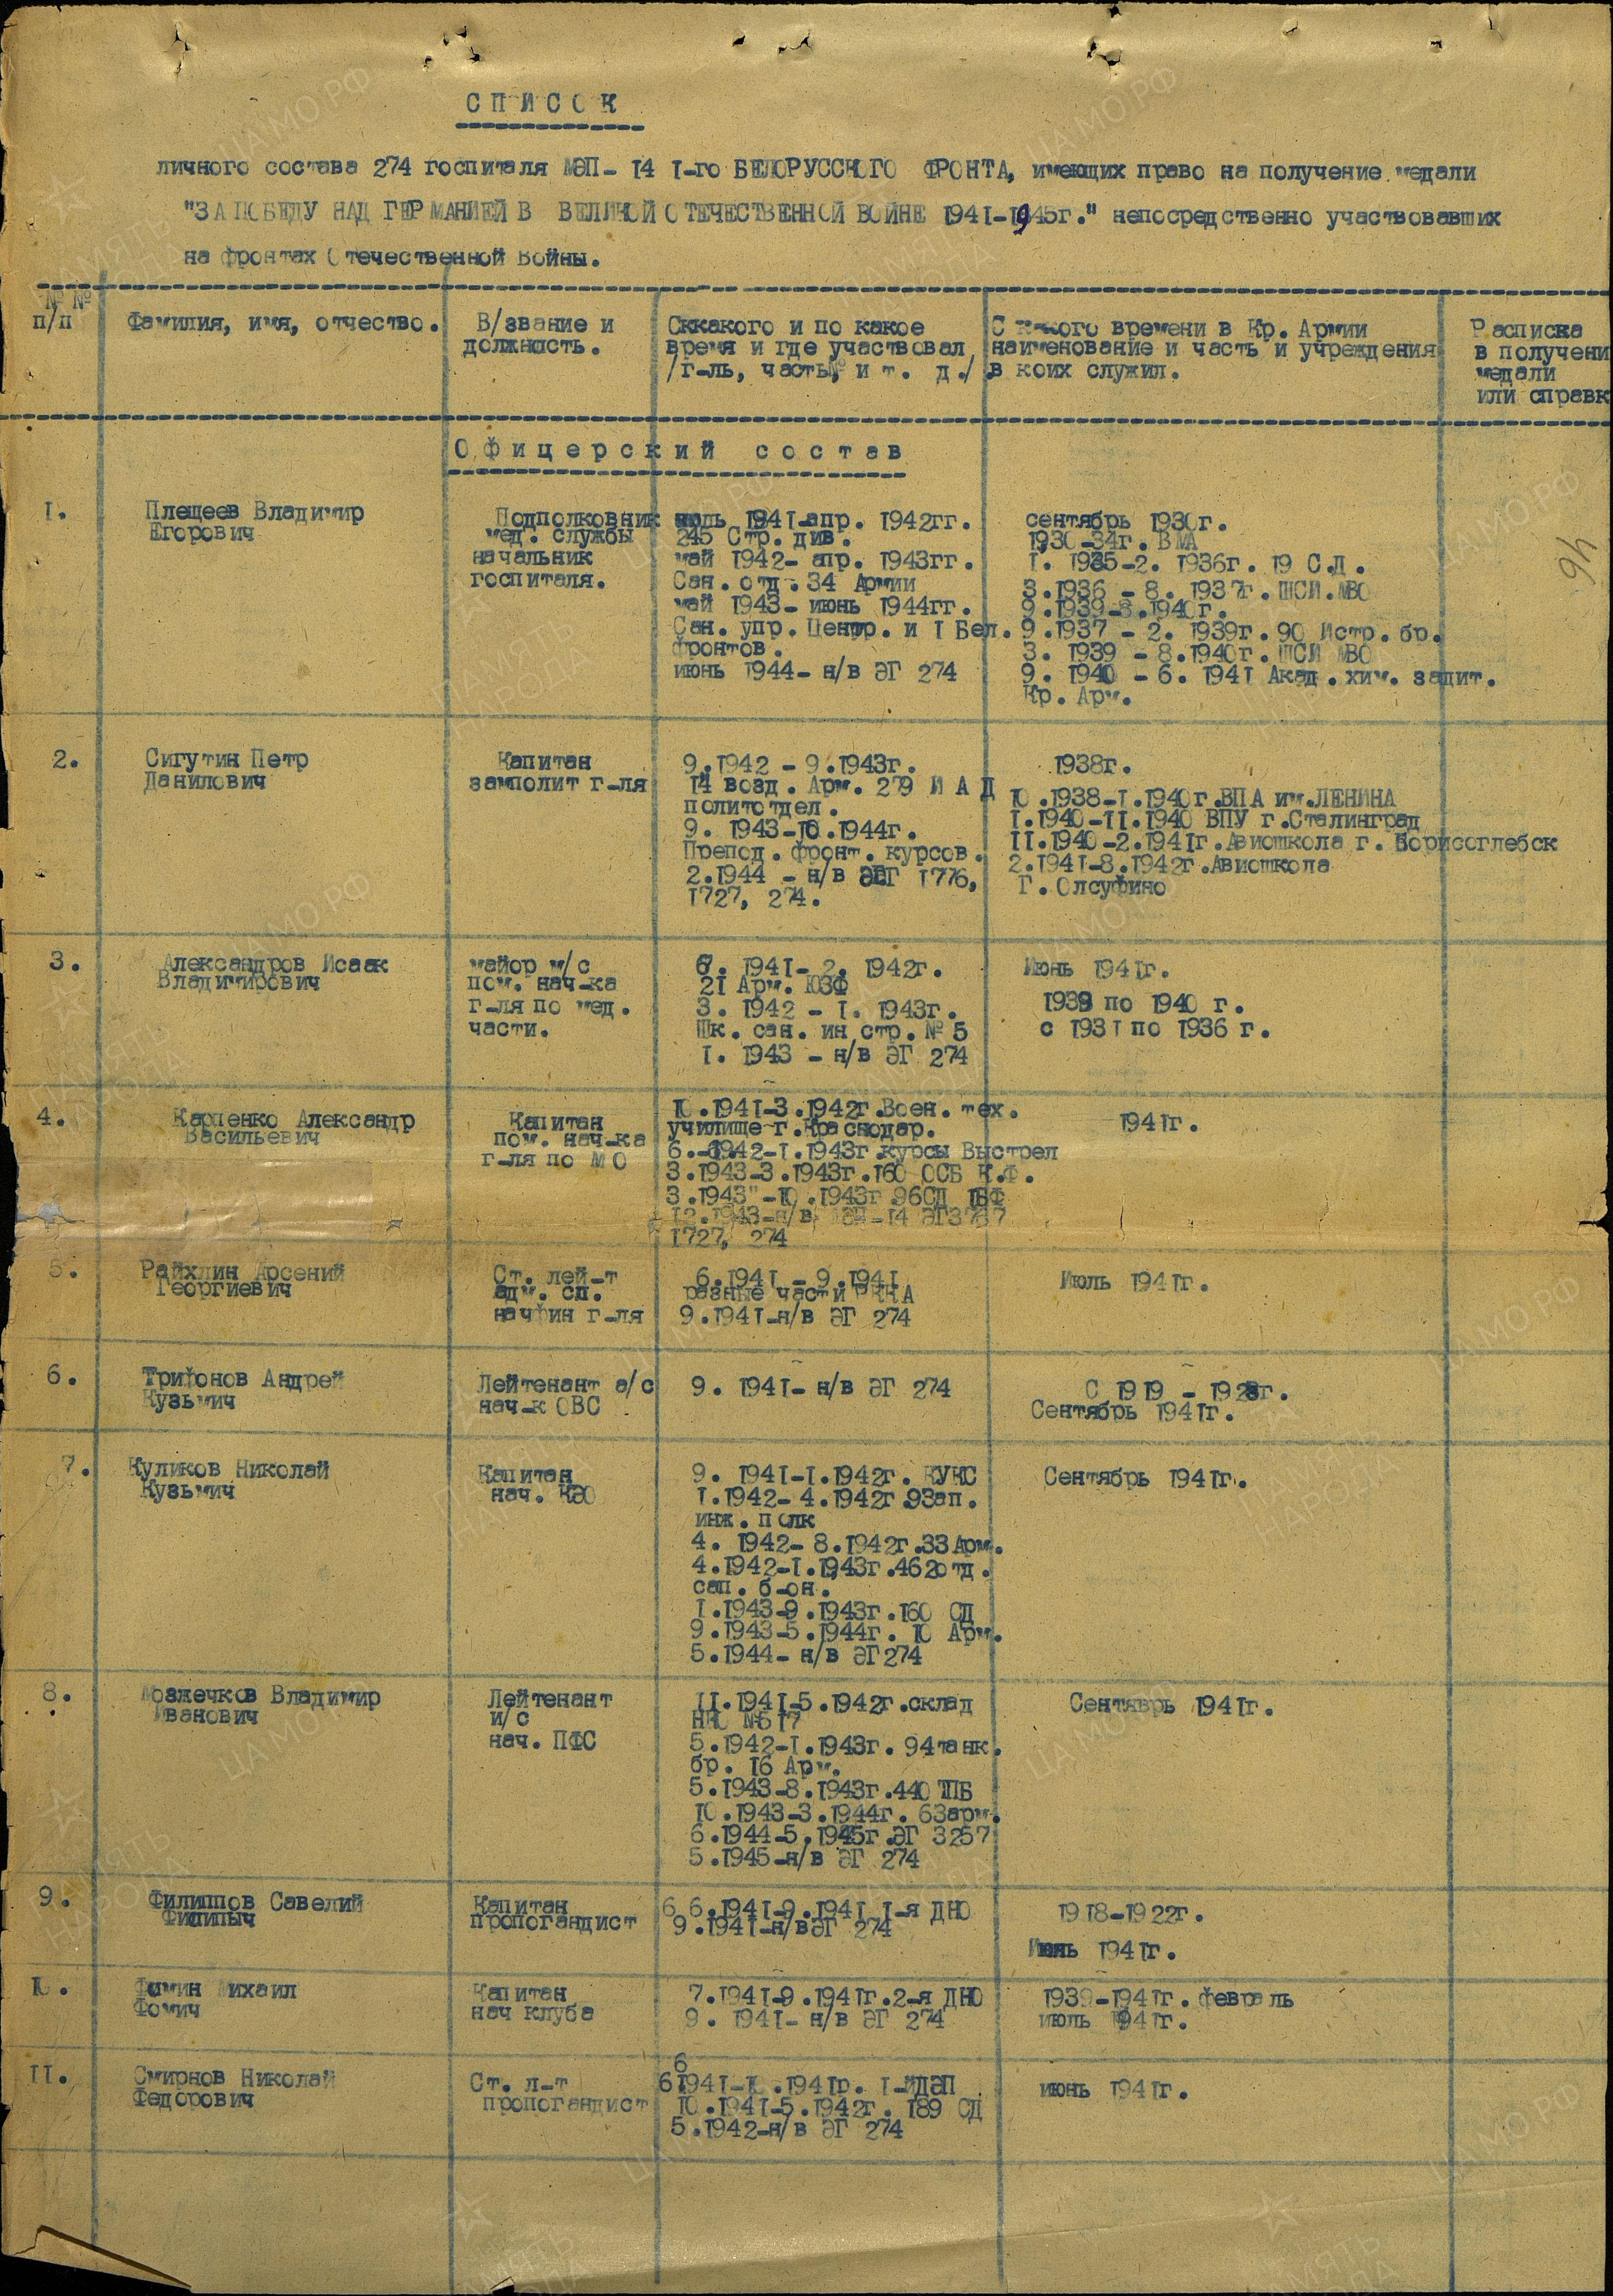 СПИСОК
личного состава 274 госпиталя МЭП- 14 I-го БЕЛОРУССКОГО ФРОНТА, имеющих право на получение медали
"ЗА ПОБЕДУ НАД ГЕРМАНИЕЙ В ВЕЛИКОЙ ОТЕЧЕСТВЕННОЙ ВОЙНЕ 1941-1945г." непосредственно участвовавших
на фронтах Отечественной Войны.
№ №
п/п
Фамилия, имя, отчество.
В/звание и
должность.
Сккакого и по какое
время и где участвовал
/г-ль, часть,№ и т. д./
С какого времени в Кр. Армии
наименование и часть и учреждения
в коих служил.
Расписка
в получени
медали
или справк
Офицерский состав
I.
Плещеев Владимир
Егорович
Подполковник
мед. службы
начальник
госпиталя.
июль 1941-апр. 1942гг.
245 Стр. див.
май 1942- апр. 1943гг.
Сан. отд. 34 Армии
май 1943- июнь 1944гг.
Сан. упр. Центр. и I Бел.
фронтов.
июнь 1944- н/в ЭГ 274
сентябрь 1930г.
1930-34г. ВМА
I. 1935-2. 1936г. 19 С.Д.
3.1936 - 8. 1937г. ШСИ.МВО
9.1939-8.1940г.
9.1937 - 2. 1939г. 90 Истр. бр.
3. 1939 - 8.1940г. ШСИ МВО
9. 1940 - 6. 1941 Акад. хим. защит.
Кр. Арм.
46
2.
Сигутин Петр
Данилович
Капитан
замполит г-ля
9.1942 - 9.1943г.
14 возд. Арм. 279 И А Д
политотдел.
9. 1943-10.1944г.
Препод. фронт. курсов.
2.1944 - н/в ЭГ 1776,
1727, 274.
1938г.
10.1938-I.1940г.ВПА им.ЛЕНИНА
I.1940-II.1940 ВПУ г.Сталинград
II.1940-2.1941г.Авиошкола г. Борисоглебск
2.1941-8.1942г.Авиошкола
Г. Олсуфино
3.
Александров Исаак
Владимирович
майор м/с
пом. нач-ка
г-ля по мед.
части.
6. 1941- 2. 1942г.
21 Арм. ЮЗФ
3. 1942 - I. 1943г.
Шк. сан. инстр. № 5
I. 1943 - н/в ЭГ 274
Июнь 1941г.
1939 по 1940 г.
с 1931 по 1936 г.
4.
Карпенко Александр
Васильевич
Капитан
пом. нач-ка
г-ля по МО
10.1941-3.1942г.Воен. тех.
училище г.Краснодар.
6.-1942-I.1943г.курсы Выстрел
3.1943-3.1943г.160 ОСБ К.Ф.
3.1943"-10.1943г.96СД 1БФ
12.1943-н/в МЭП-14 ЭГ3767
1727, 274
1941г.
5.
Райхлин Арсений
Георгиевич
Ст. лей-т
адм. сл.
начфин г-ля
6.1941 - 9.1941
разные части РККА
9.1941-н/в ЭГ 274
Июль 1941г.
6.
Трифонов Андрей
Кузьмич
Лейтенант а/с
нач-к ОВС
9. 1941- н/в ЭГ 274
С 1919 - 1923г.
Сентябрь 1941г.
7.
Куликов Николай
Кузьмич
Капитан
нач. КЭО
9. 1941-I.1942г. КУКС
I.1942- 4.1942г.93ап.
инж. полк
4. 1942- 8.1942г.33 Арм.
4.1942-I.1943г.462отд.
сап. б-он.
I.1943-9.1943г.160 СД
9.1943-5.1944г. 10 Арм.
5.1944- н/в ЭГ 274
Сентябрь 1941г.
8.
Мозжечков Владимир
Иванович
Лейтенант
и/с
нач. ПФС
II.1941-5.1942г.склад
НКО №517
5.1942-I.1943г. 94танк.
бр. 16 Арм.
5.1943-8.1943г.440 ТПБ
10.1943-3.1944г. 63арм.
6.1944-5.1945г.ЭГ 3257
5.1945-н/в ЭГ 274
Сентяврь 1941г.
9.
Филиппов Савелий
Филипыч
Капитан
пропогандист
6 6.1941-9.1941 I-я ДНО
9.1941-н/в ЭГ 274
1918-1922г.
Июнь 1941г.
10.
Фимин Михаил
Фомич
Капитан
нач клуба
7.1941-9.1941г.2-я ДНО
9. 1941- н/в ЭГ 274
1939-1941г. февраль
июль 1941г.
II.
Смирнов Николай
Федорович
Ст. л-т
пропогандист
6
6.1941-10.1941г. I-ЙДЭП
10.1941-5.1942г. 189 СД
5.1942-н/в ЭГ 274
июнь 1941г.